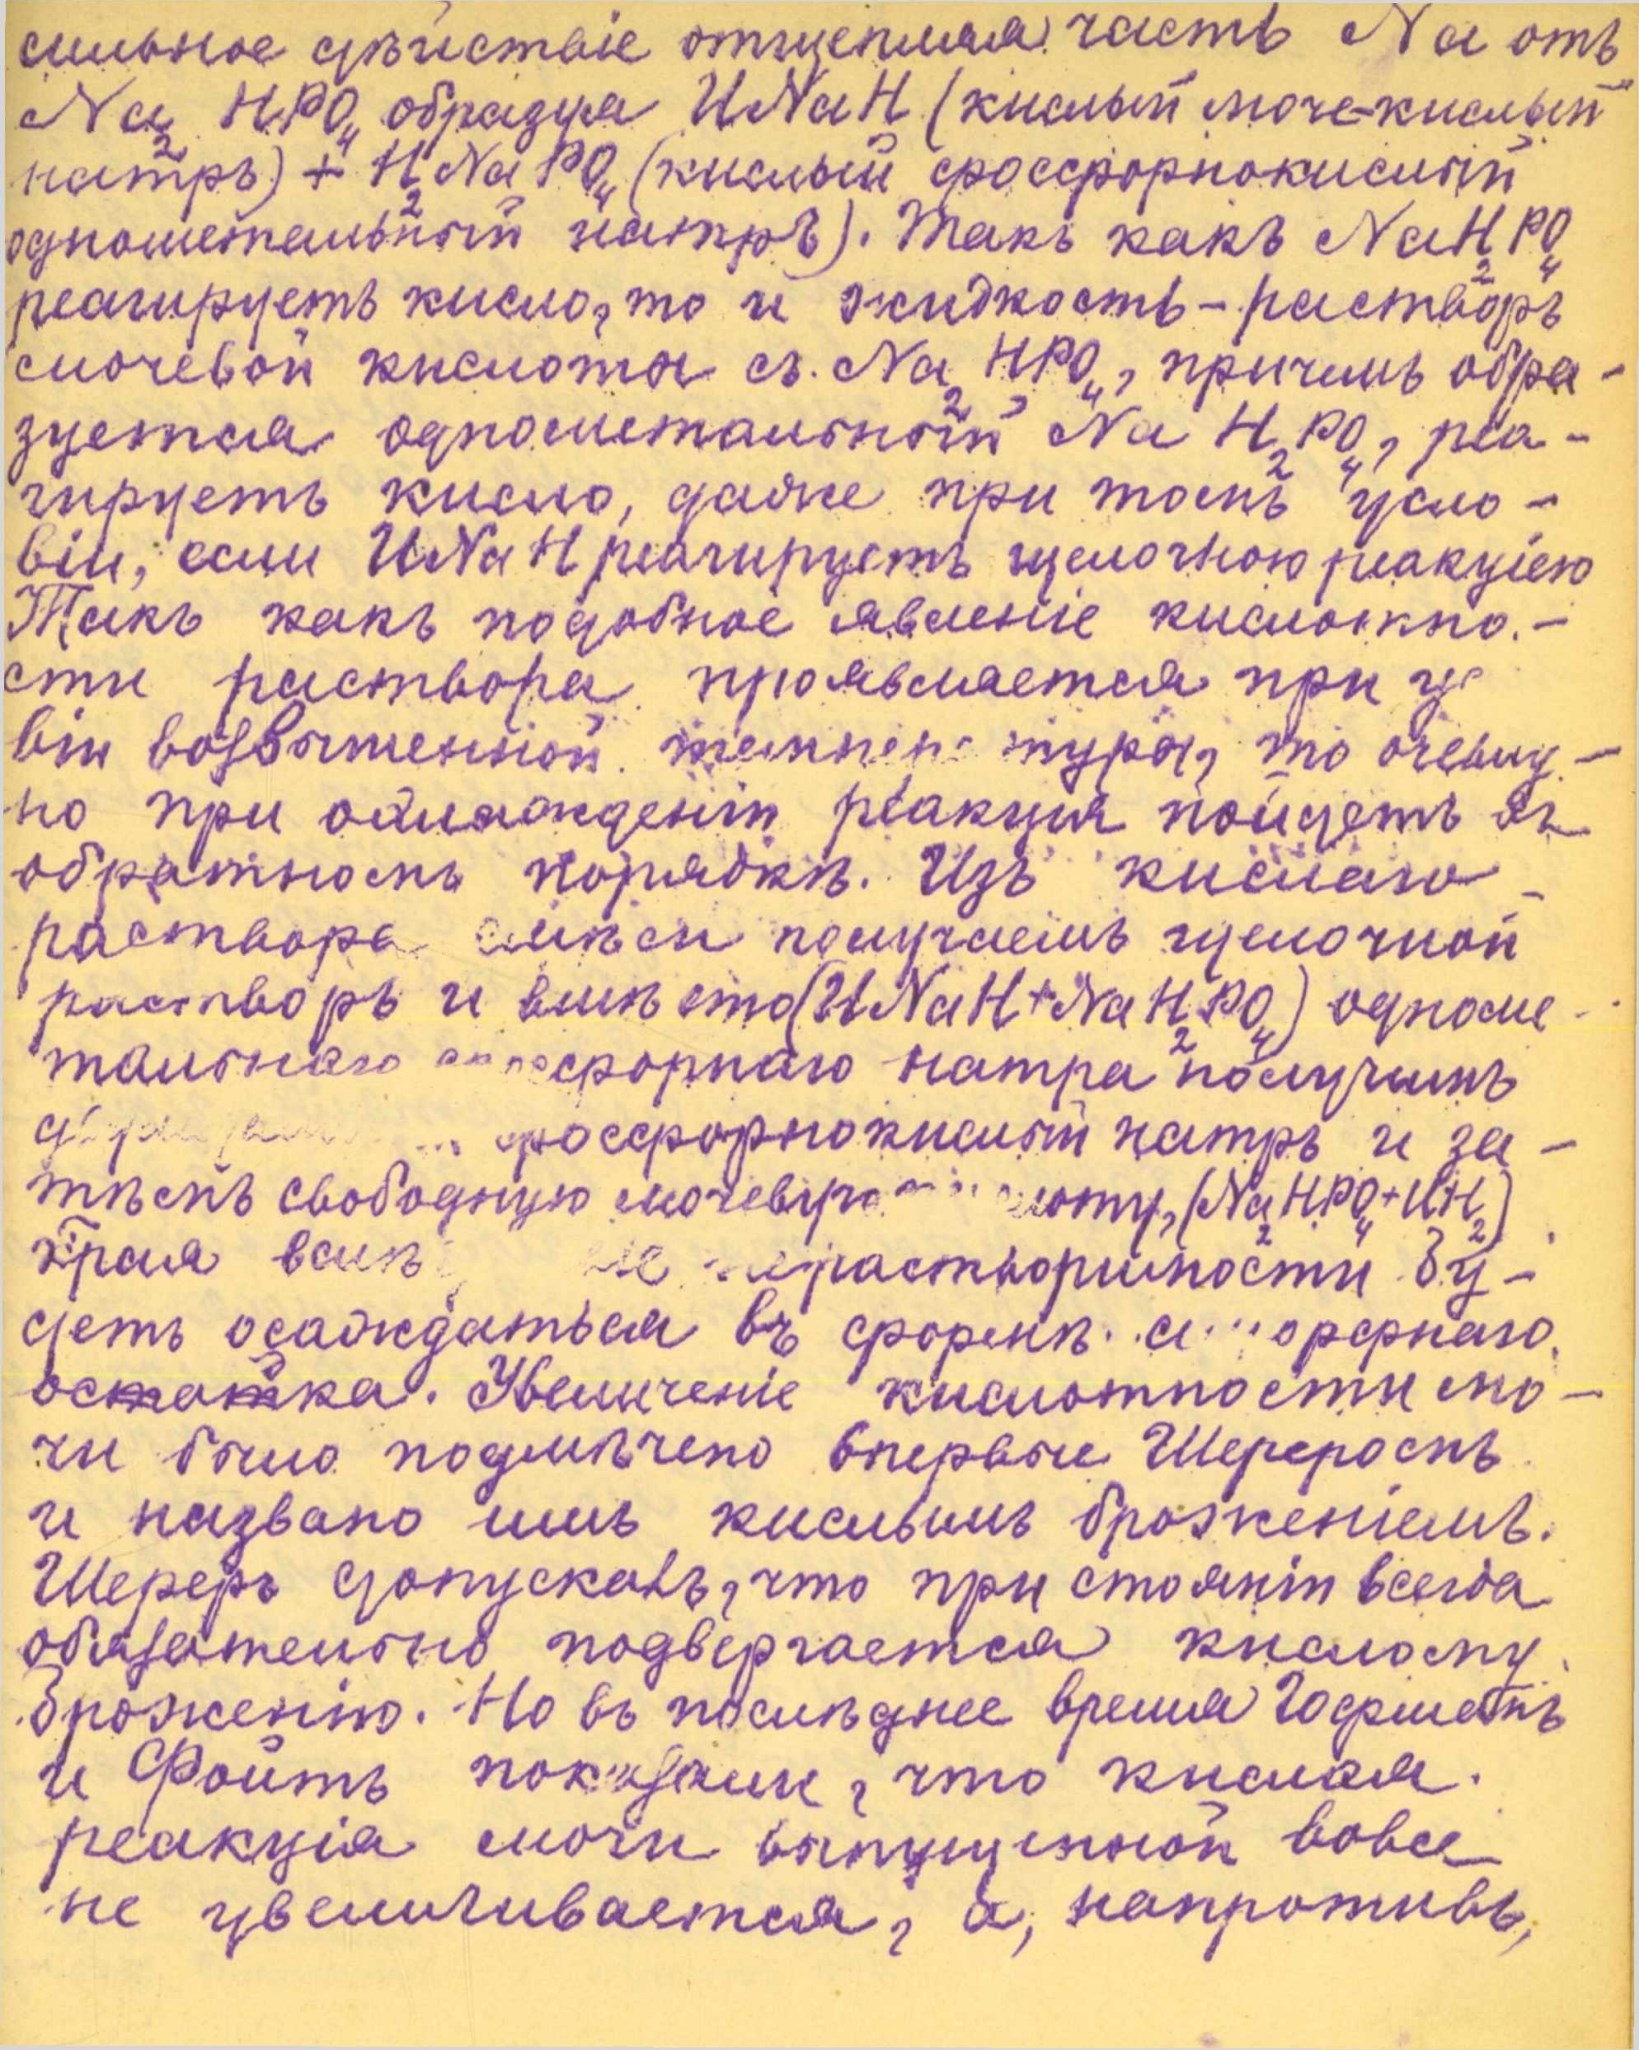 сильное дѣйствіе отщепляя часть Na отъ
Na₂HPO₄ образуя UNaH (кислый моче-кислый
натръ) + H₂NaPO₄ (кислый фосфорнокислый
однометальный натръ). Такъ какъ NaH₂PO₄
реагируетъ кисло, то и жидкость - растворъ
мочевой кислоты съ Na₂HPO₄, причемъ обра-
зуется однометальный NaH₂PO₄, реа-
гируетъ кисло, даже при томъ усло-
віи, если UNaH реагируетъ щелочною реакціею
Такъ какъ подобное явленіе кислотно-
сти раствора проявляется при
віи возвышенной температуры, то очевид-
но при охлажденіи реакція пойдетъ въ
обратномъ порядкѣ. Изъ кислаго
раствора смѣси получаемъ щелочной
растворъ и вмѣсто (UNaH + NaH₂PO₄) одноме-
тальнаго фосфорнаго натра получимъ
фосфорнокислый натръ и за-
тѣмъ свободную мочевую (Na₂HPO₄ + UH₂)
вслѣ нерастворимости бу-
детъ осаждаться въ формѣ аморфнаго
осадка. Увеличеніе кислотности мо-
чи было подмѣчено впервые Шереромъ
и названо имъ кислымъ броженіемъ.
Шереръ допускалъ, что при стояніи всегда
обязательно подвергается кислому
броженію. Но въ послѣднее время Гофманъ
и Фойтъ показали, что кислая
реакція мочи выпущенной вовсе
не увеличивается, а, напротивъ,